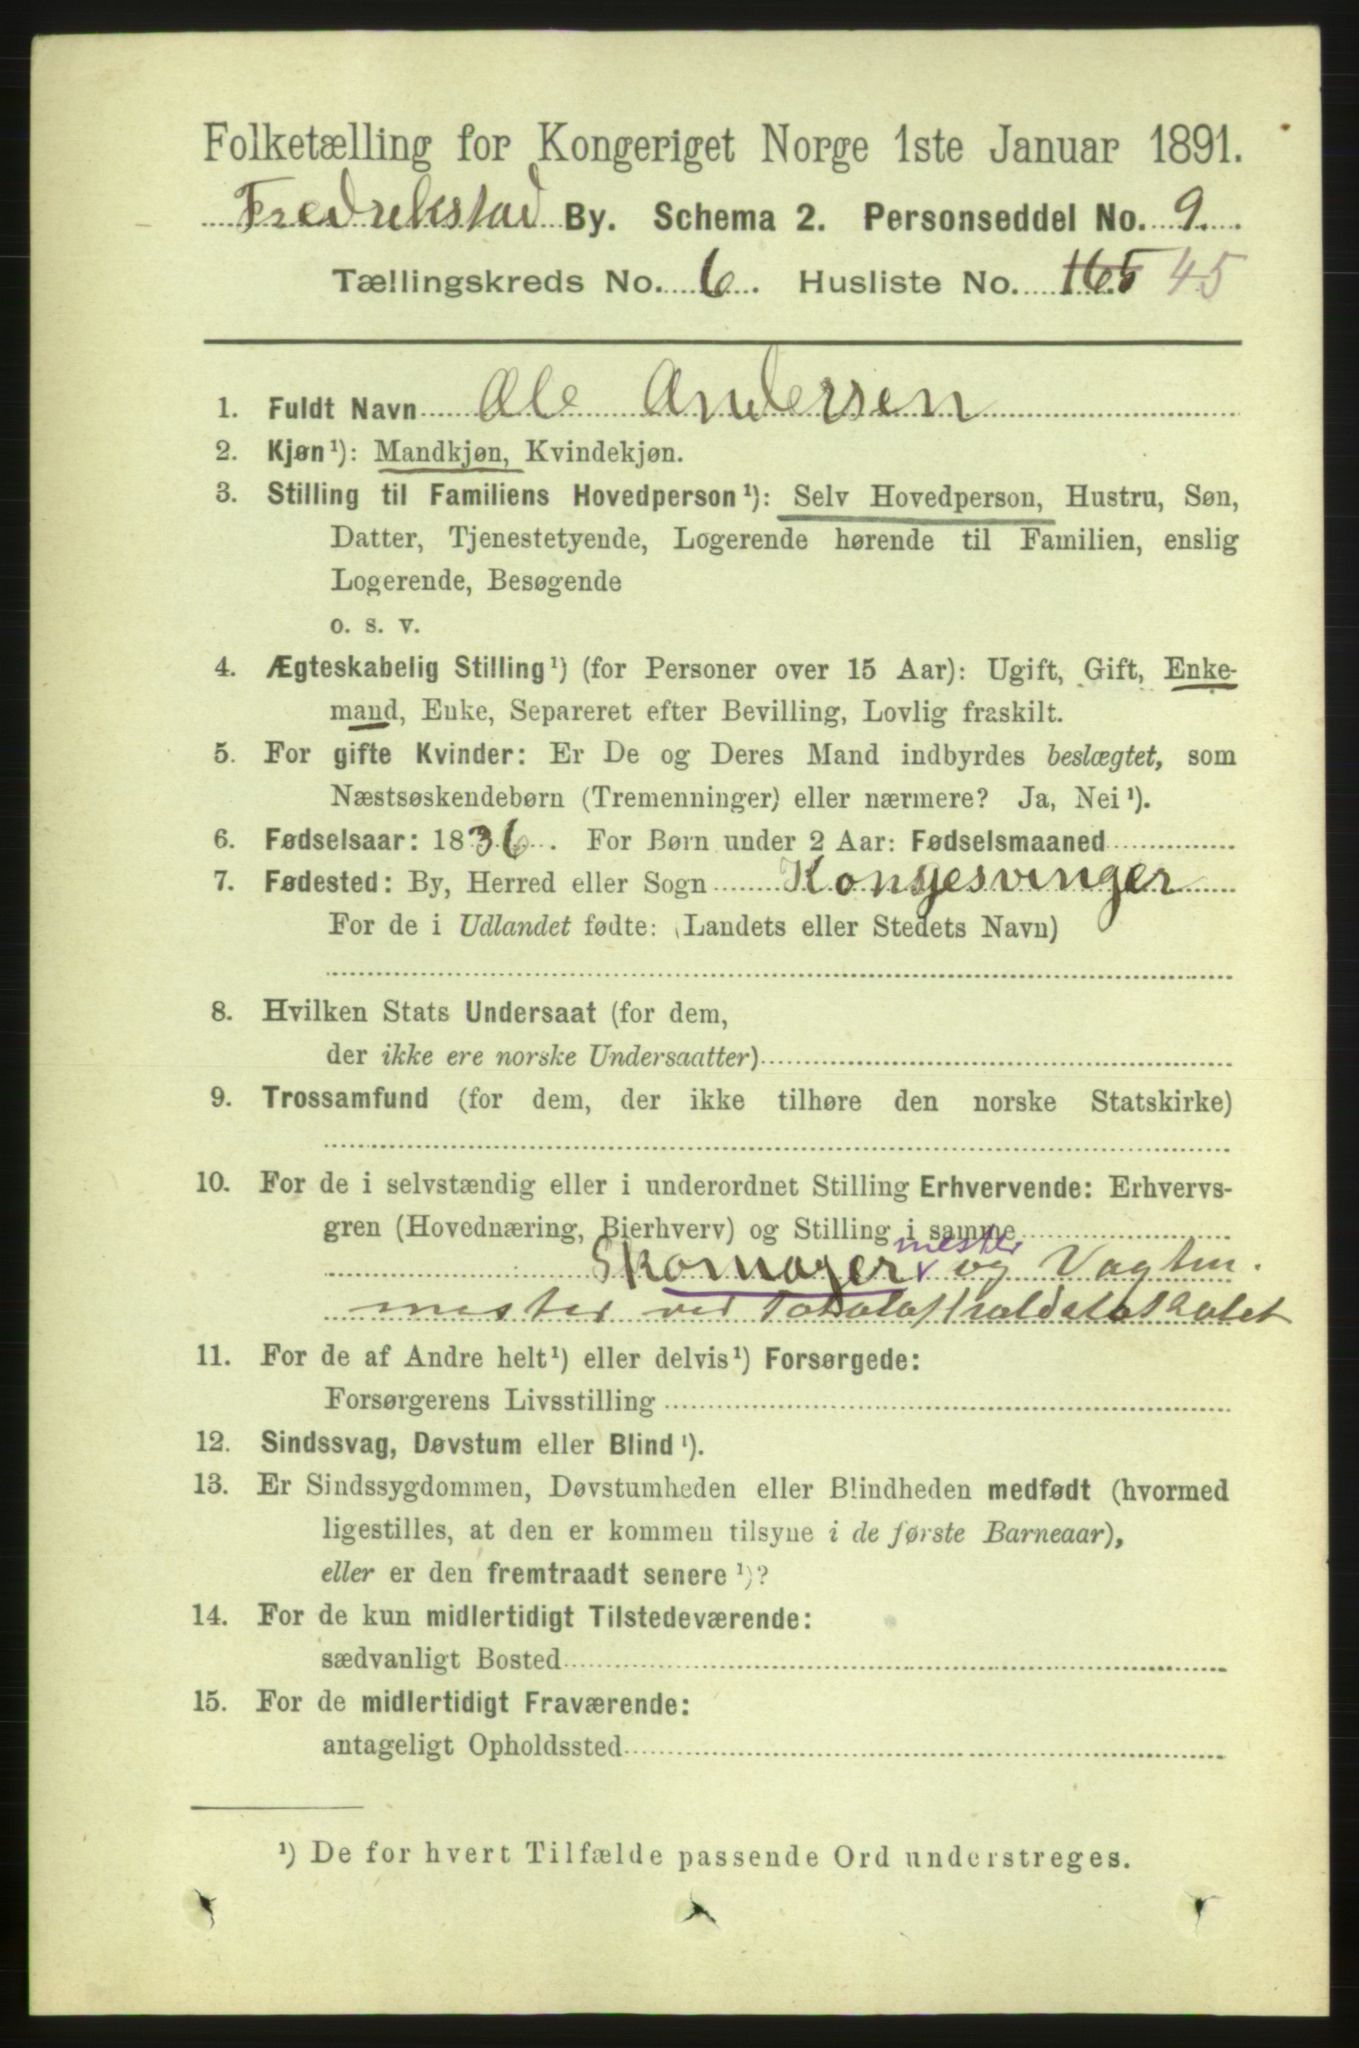 Folketælling for Kongeriget Norge 1ste Januar 1891.
Fredrikstad By. Schema 2. Personseddel No. 9.
Tællingskreds No. 6. Husliste No. 165 45
1. Fuldt Navn Ole Andersen
2. Kjøn¹): Mandkjøn, Kvindekjøn.
3. Stilling til Familiens Hovedperson¹): Selv Hovedperson, Hustru, Søn,
Datter, Tjenestetyende, Logerende hørende til Familien, enslig
Logerende, Besøgende
o. s. v.
4. Ægteskabelig Stilling¹) (for Personer over 15 Aar): Ugift, Gift, Enke-
mand, Enke, Separeret efter Bevilling, Lovlig fraskilt.
5. For gifte Kvinder: Er De og Deres Mand indbyrdes beslægtet, som
Næstsøskendebørn (Tremenninger) eller nærmere? Ja, Nei¹).
6. Fødselsaar: 1836. For Børn under 2 Aar: Fødselsmaaned
7. Fødested: By, Herred eller Sogn Kongesvinger
For de i Udlandet fødte: (Landets eller Stedets Navn)
8. Hvilken Stats Undersaat (for dem,
der ikke ere norske Undersaatter)
9. Trossamfund (for dem, der ikke tilhøre den norske Statskirke)
10. For de i selvstændig eller i underordnet Stilling Erhvervende: Erhvervs-
gren (Hovednæring, Bierhverv) og Stilling i samme
mester
Skomager og
mester ved
11. For de af Andre helt¹) eller delvis¹) Forsørgede:
Forsørgerens Livsstilling
12. Sindssvag, Døvstum eller Blind¹).
13. Er Sindssygdommen, Døvstumheden eller Blindheden medfødt (hvormed
ligestilles, at den er kommen tilsyne i de første Barneaar),
eller er den fremtraadt senere¹)?
14. For de kun midlertidigt Tilstedeværende:
sædvanligt Bosted
15. For de midlertidigt Fraværende:
antageligt Opholdssted
¹) De for hvert Tilfælde passende Ord understreges.